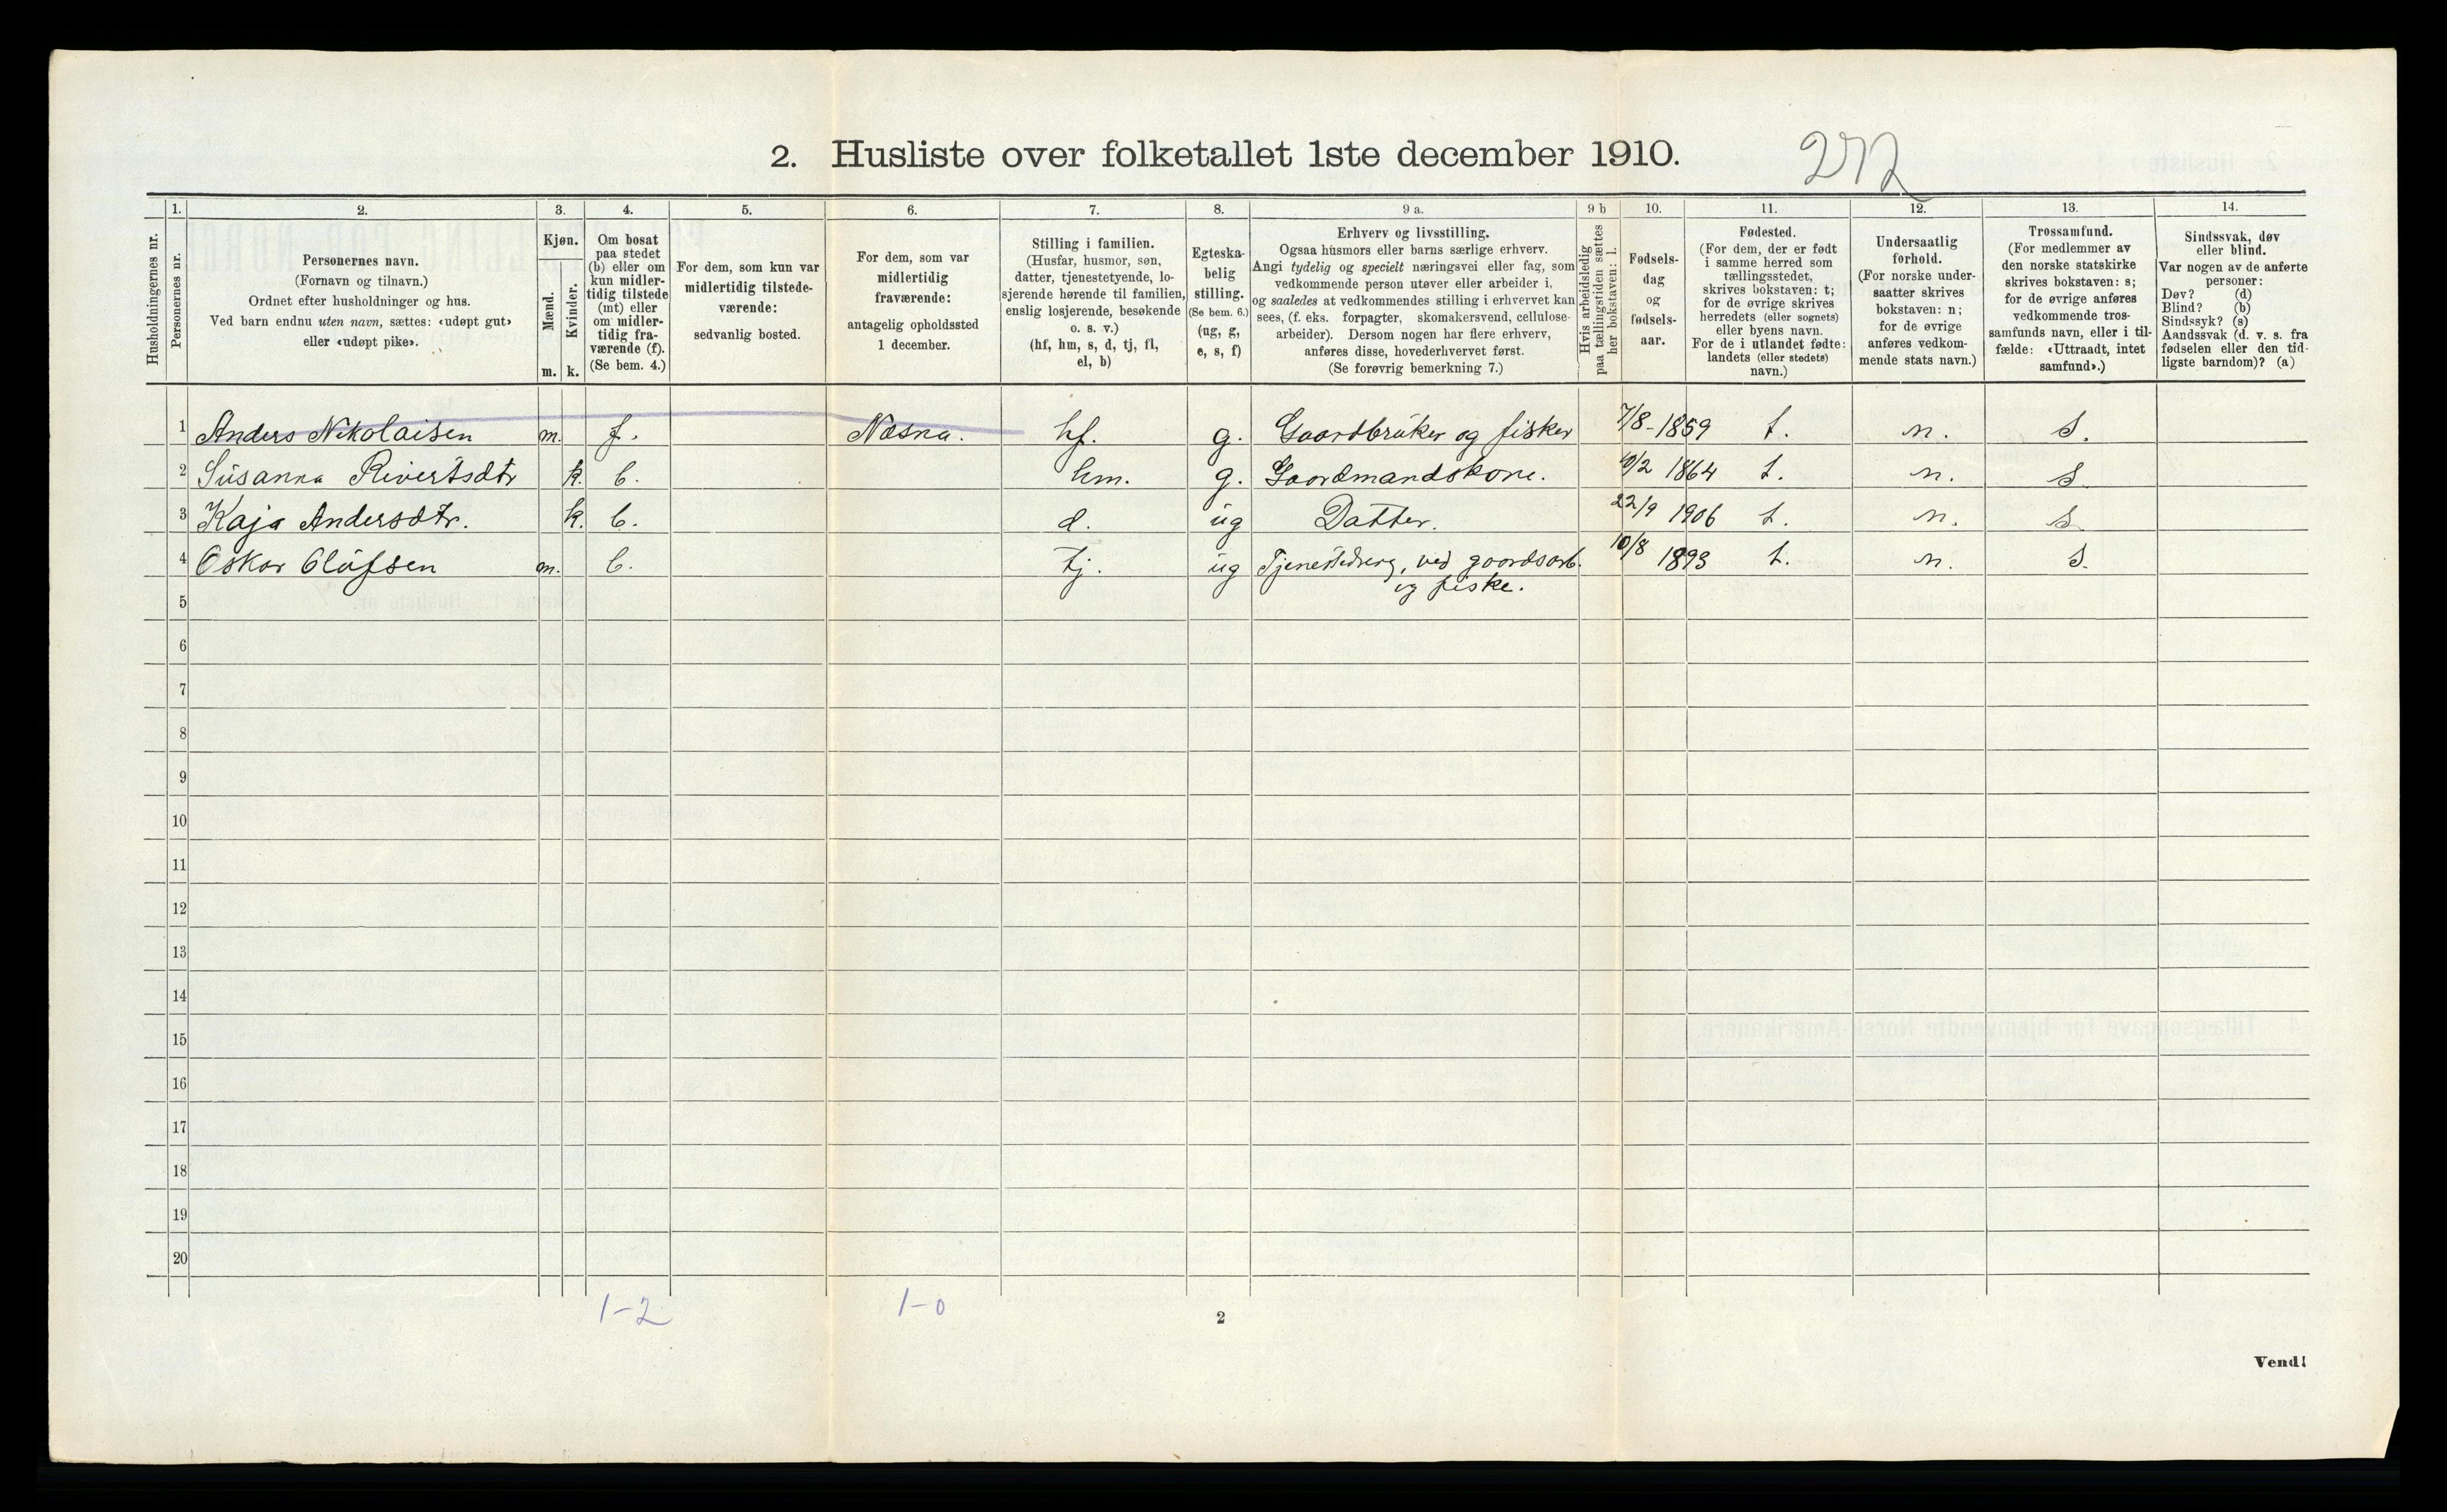 2. Husliste over folketallet 1ste december 1910.
272
Husholdningernes nr.
1.
Personernes nr.
2.
Personernes navn.
(Fornavn og tilnavn.)
Ordnet efter husholdninger og hus.
Ved barn endnu uten navn, sættes: «udøpt gut»
eller «udøpt pike».
3.
Kjøn.
Mænd.
Kvinder.
m. k.
4.
Om bosat
paa stedet
(b) eller om
kun midler-
tidig tilstede
(mt) eller
om midler-
tidig fra-
værende (f).
(Se bem. 4.)
5.
For dem, som kun var
midlertidig tilstede-
værende:
sedvanlig bosted.
6.
For dem, som var
midlertidig
fraværende:
antagelig opholdssted
1 december.
7.
Stilling i familien.
(Husfar, husmor, søn,
datter, tjenestetyende, lo-
sjerende hørende til familien,
enslig losjerende, besøkende
o. s. v.)
(hf, hm, s, d, tj, fl,
el, b)
8.
Egteska-
belig
stilling.
(Se bem. 6.)
(ug, g,
e, s, f)
9 a.
Erhverv og livsstilling.
Ogsaa husmors eller barns særlige erhverv.
Angi tydelig og specielt næringsvei eller fag, som
vedkommende person utøver eller arbeider i,
og saaledes at vedkommendes stilling i erhvervet kan
sees, (f. eks. forpagter, skomakersvend, cellulose-
arbeider). Dersom nogen har flere erhverv,
anføres disse, hovederhvervet først.
(Se forøvrig bemerkning 7.)
9 b
Hvis arbeidsledig
paa tællingstiden sættes
her bokstaven: l.
10.
Fødsels-
dag
og
fødsels-
aar.
11.
Fødested.
(For dem, der er født
i samme herred som
tællingsstedet,
skrives bokstaven: t;
for de øvrige skrives
herredets (eller sognets)
eller byens navn.
For de i utlandet fødte:
landets (eller stedets)
navn.)
12.
Undersaatlig
forhold.
(For norske under-
saatter skrives
bokstaven: n;
for de øvrige
anføres vedkom-
mende stats navn.)
13.
Trossamfund.
(For medlemmer av
den norske statskirke
skrives bokstaven: s;
for de øvrige anføres
vedkommende tros-
samfunds navn, eller i til-
fælde: «Uttraadt, intet
samfund».)
14.
Sindssvak, døv
eller blind.
Var nogen av de anførte
personer:
Døv? (d)
Blind? (b)
Sindssyk? (s)
Aandssvak (d. v. s. fra
fødselen eller den tid-
ligste barndom)? (a)
1 Anders Nikolaisen m. f. Næsna. hf. g. Gaardbruker og fisker 7/8-1859 t. n. s.
2 Susanna Rivertsdtr k. b. hm. g. Gaardmandskone. 1864 t. n. s.
3 Kaja Andersdtr. k. b. d. ug Datter. 22/9 1906 t. n. s.
4 Oskar Olufsen m. b. tj. ug Tjenestedreng, ved gaardsarb. 10/8 1893 t. n. s.
og fiske.
5
6
7
8
9
10
11
12
13
14
15
16
17
18
19
20
1-2 1-0
2
Vend!